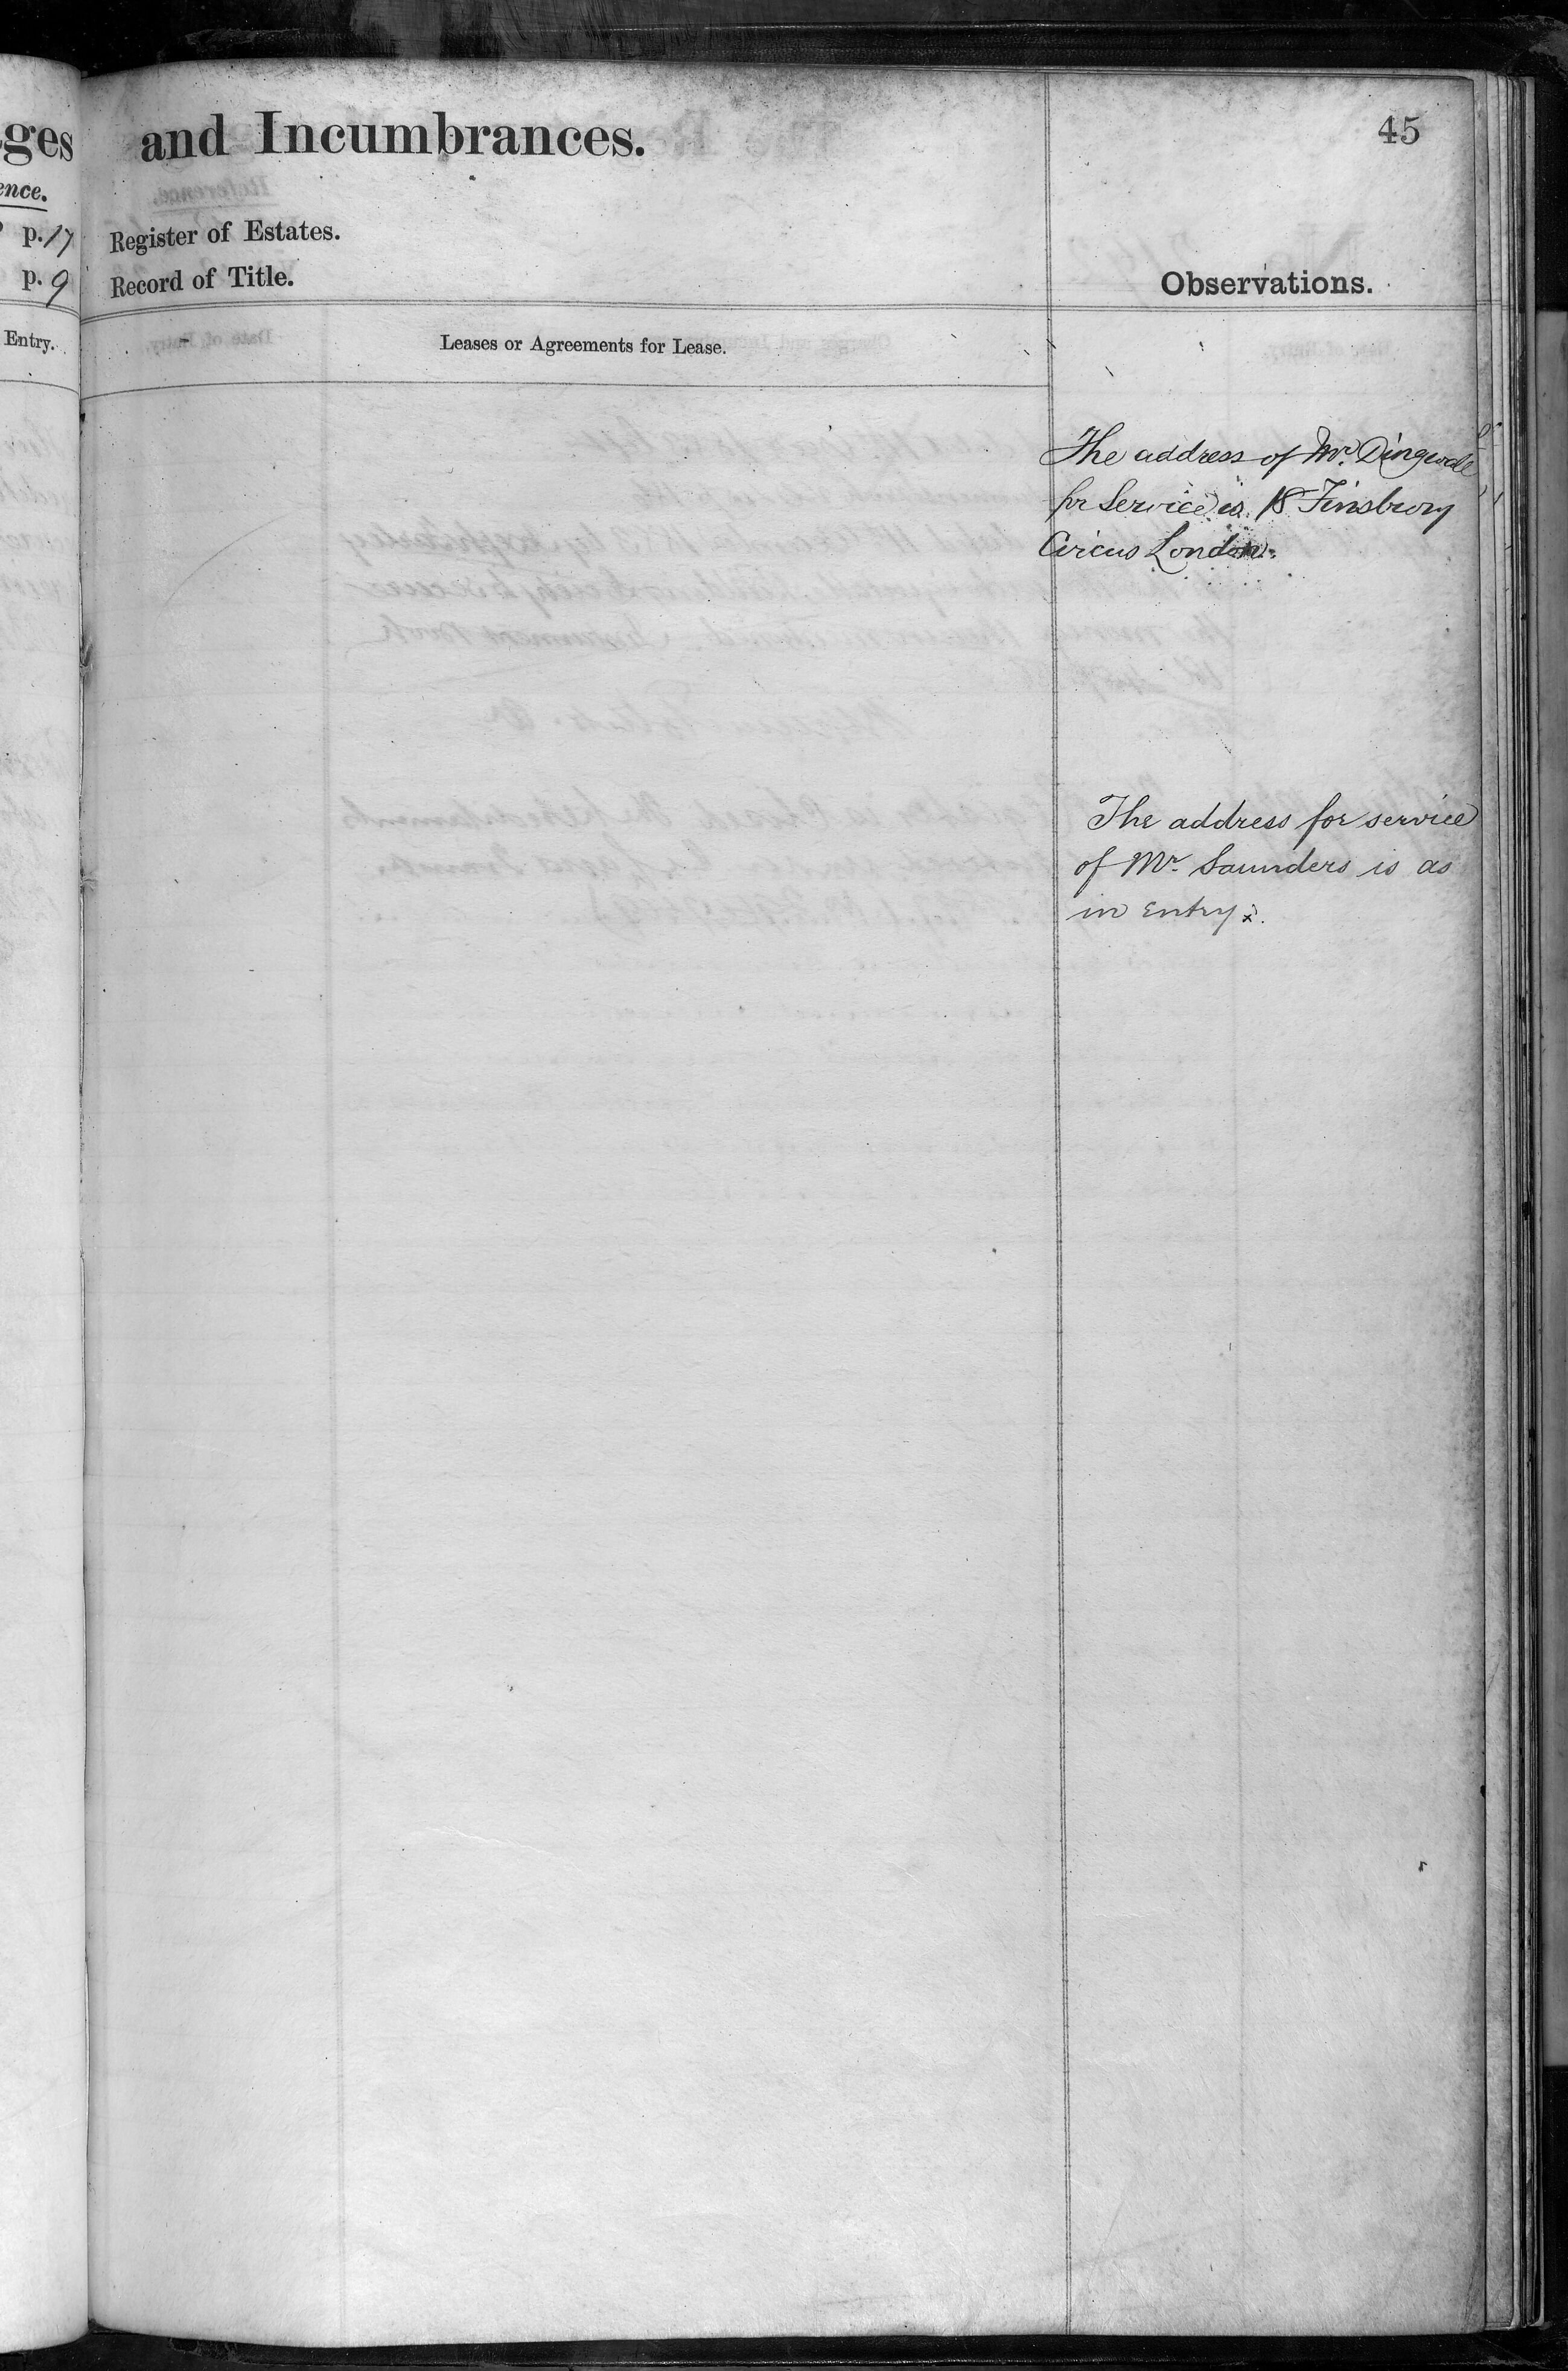 ges and Incumbrances.
45
ence.
p. 17 Register of Estates.
p. 9 Record of Title.
Observations.
Entry.
Leases or Agreements for Lease.
The address of Mr. Dingwall
for Service is 18 Finsbury
Circus London.
The address for service
of Mr. Saunders is as
in Entry.